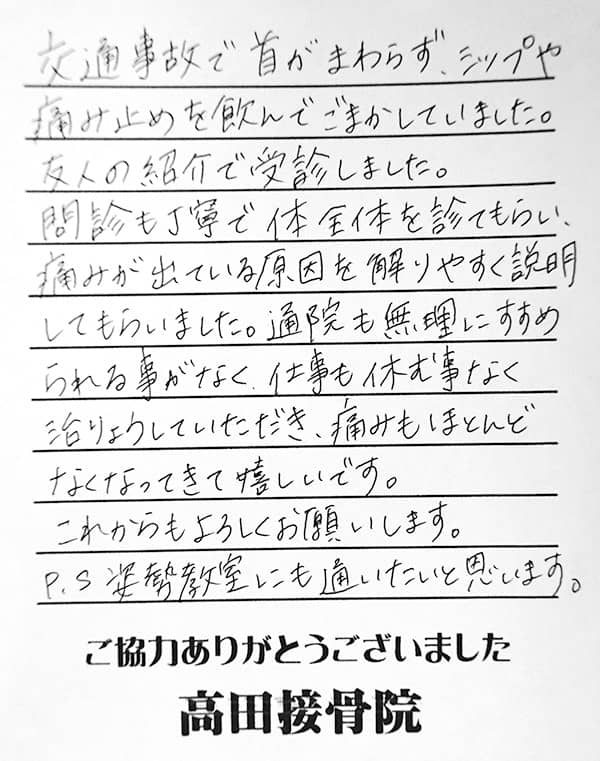 交通事故で首がまわらず、シップや
痛み止めを飲んでごまかしていました。
友人の紹介で受診しました。
問診も丁寧で体全体を診てもらい、
痛みが出ている原因を解りやすく説明
してもらいました。通院も無理にすすめ
られる事がなく、仕事も休む事なく
治りょうしていただき、痛みもほとんど
なくなってきて嬉しいです。
これからもよろしくお願いします。
P.S 姿勢教室にも通いたいと思います。
ご協力ありがとうございました
高田接骨院